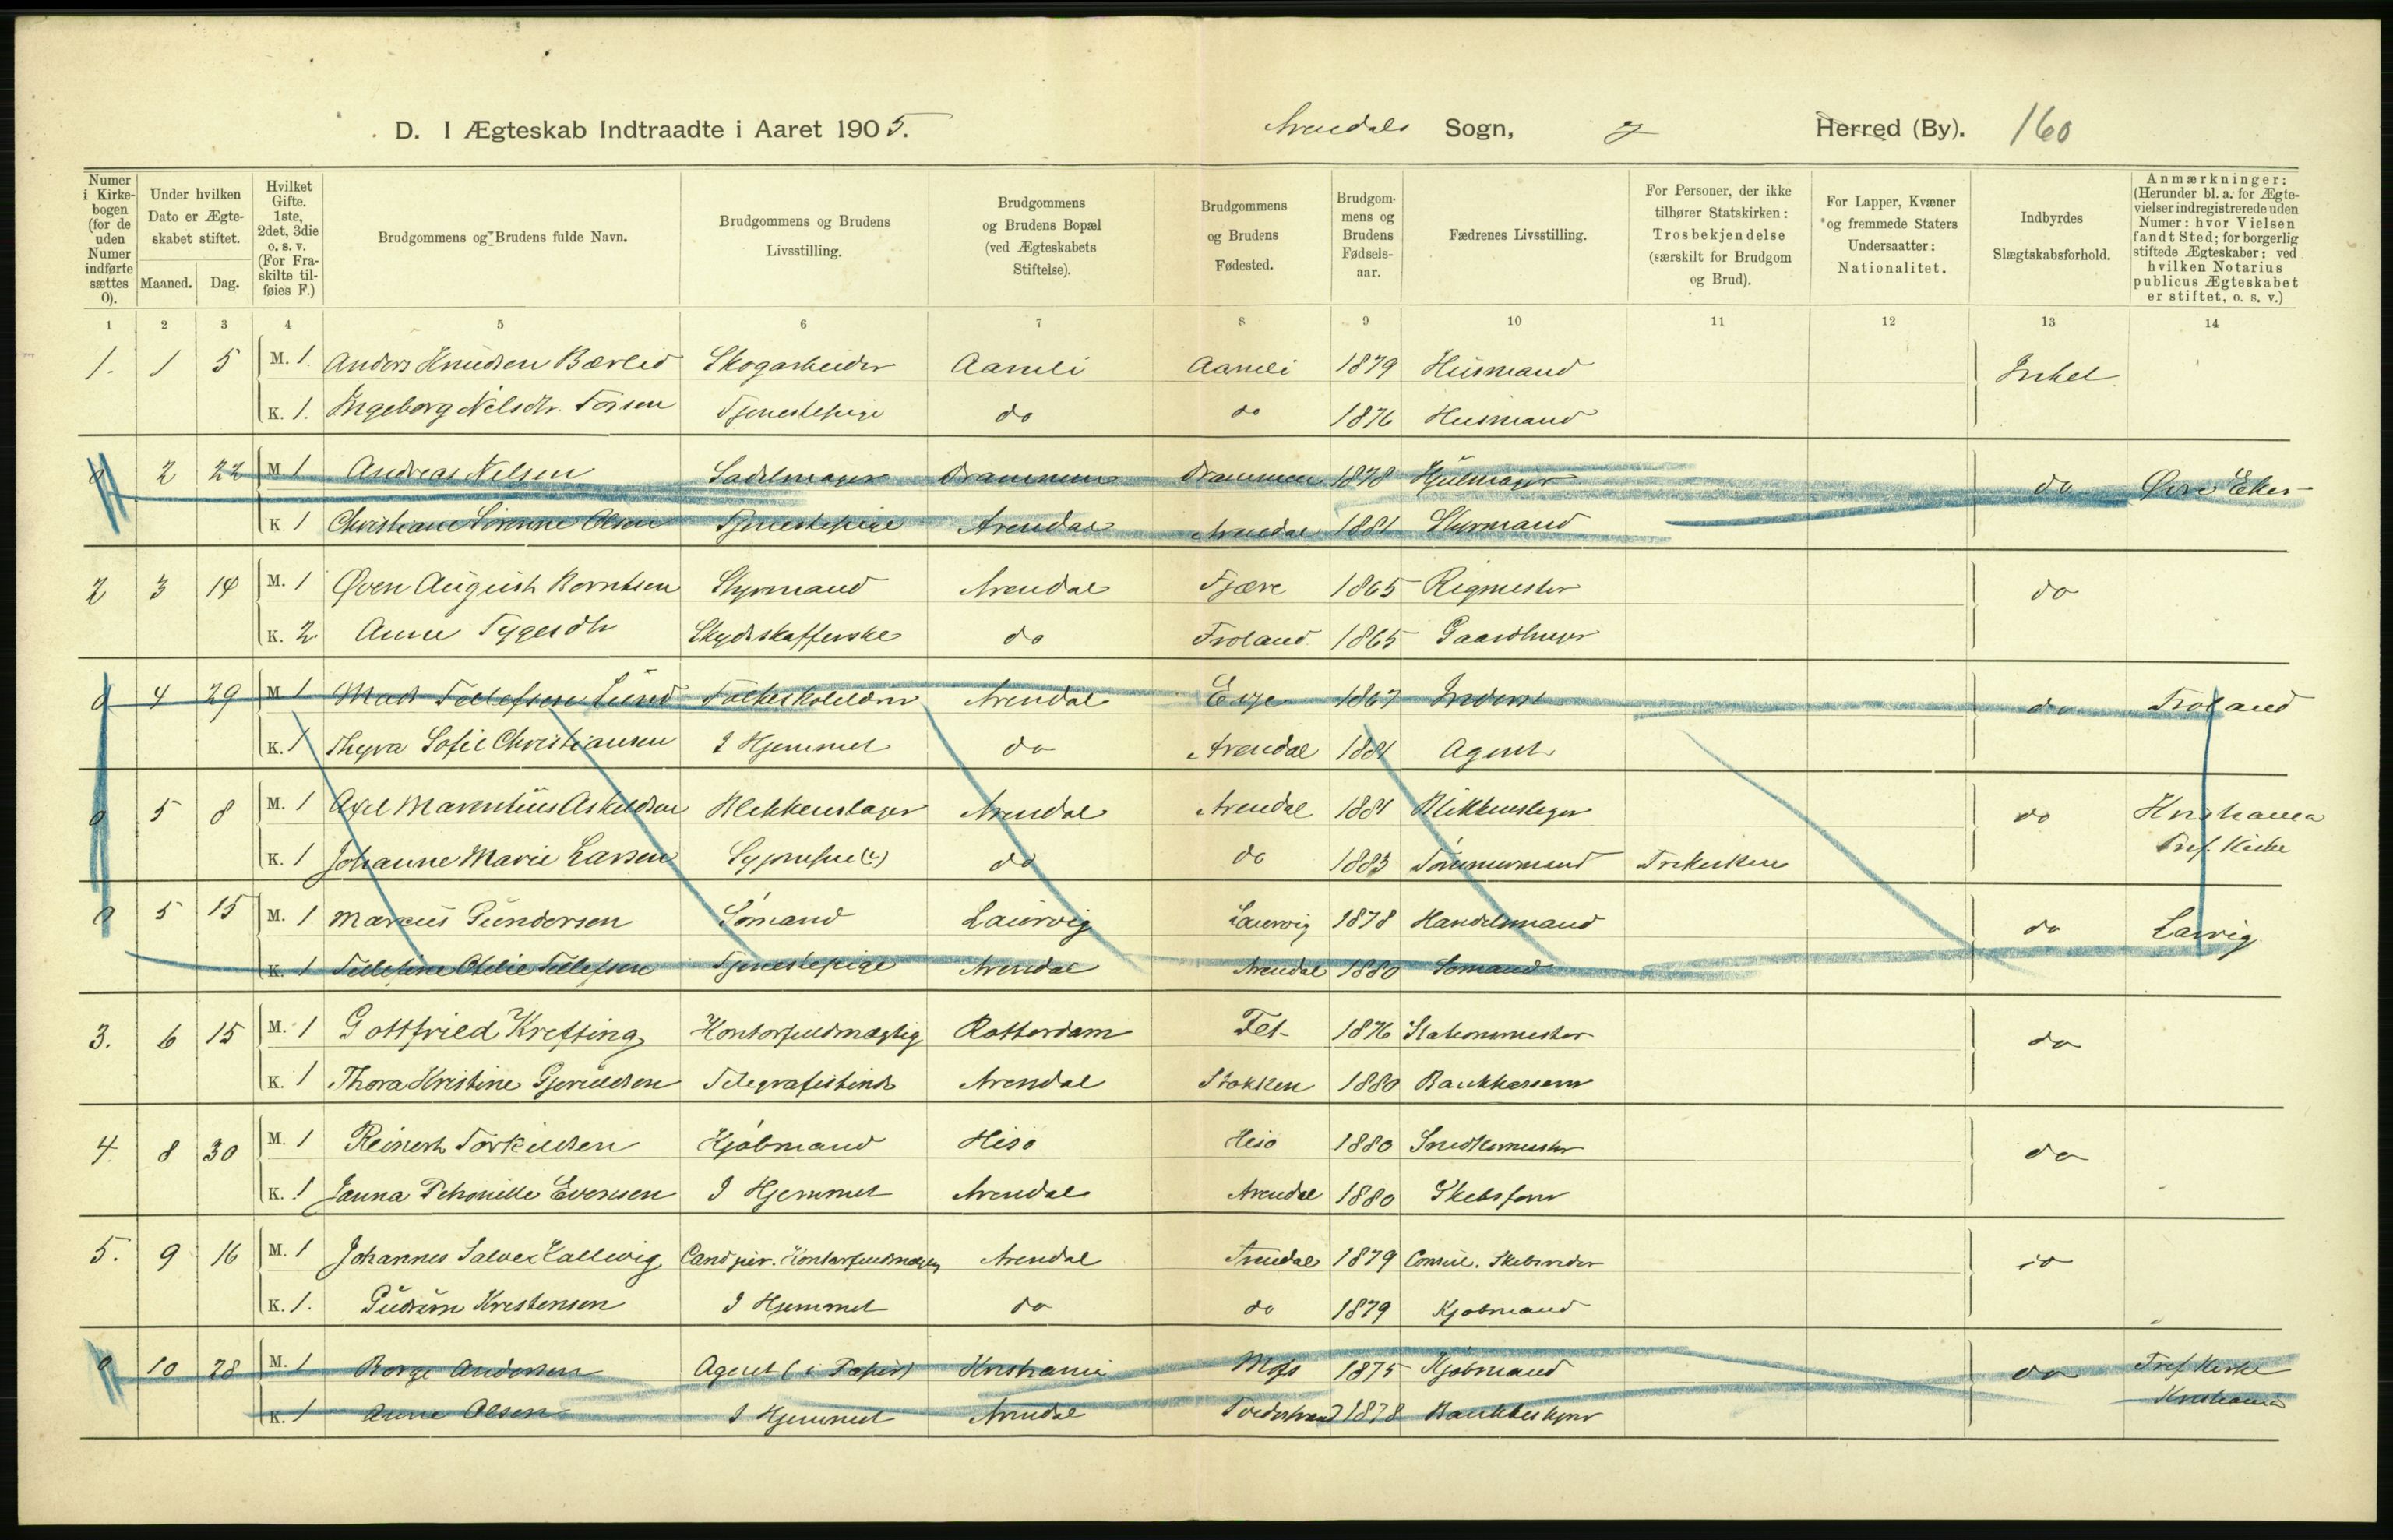 D. I Ægteskab Indtraadte i Aaret 1905. Arendals Sogn, Herred (By). 160
Numer i Kirkebogen (for de uden Numer indførte sættes 0).
Under hvilken Dato er Ægteskabet stiftet.
Maaned. Dag.
Hvilket Gifte. 1ste, 2det, 3die o. s. v. (For Fraskilte tilføies F.)
Brudgommens og Brudens fulde Navn.
Brudgommens og Brudens Livsstilling.
Brudgommens og Brudens Bopæl (ved Ægteskabets Stiftelse).
Brudgommens og Brudens Fødested.
Brudgommens og Brudens Fødselsaar.
Fædrenes Livsstilling.
For Personer, der ikke tilhører Statskirken: Trosbekjendelse (særskilt for Brudgom og Brud).
For Lapper, Kvæner og fremmede Staters Undersaatter: Nationalitet.
Indbyrdes Slægtskabsforhold.
Anmærkninger: (Herunder bl. a. for Ægtevielser indregistrerede uden Numer: hvor Vielsen fandt Sted; for borgerlig stiftede Ægteskaber: ved hvilken Notarius publicus Ægteskabet er stiftet, o. s. v.)
1 2 3 4 5 6 7 8 9 10 11 12 13 14
1. 1 5 M. 1. Anders Knudsen Bærlid Skogarbeider Aamli Aamli 1879 Husmand Inkel
K. 1. Ingeborg Nilsdtr. Torsen Tjenestepige do do 1876 Husmand
0 2 22 M. 1 Andreas Nelsen Sadelmager Drammen Drammen 1878 Hjulmager do Øvre Eker
K. 1 Christiane Lorenne Olsen Tjenestepige Arendal Arendal 1881 Styrmand
2 3 14 M. 1 Øven August Berntsen Styrmand Arendal Fjære 1865 Rigmester do
K. 2 Anne Tygesdtr Skydsskafferske do Froland 1865 Gaardbruger
0 4 29 M. 1 Mads Tellefsen Lund Folkeskolelærer Arendal Eige 1867 Inderst do Froland
K. 1 Thyra Sofie Christiansen I Hjemmet do Arendal 1881 Agent
0 5 8 M. 1 Axel Marentius Askildsen Blikkenslager Arendal Arendal 1881 Blikkenslager do Kristiania
K. 1 Johanne Marie Larsen Syjomfru(e) do do 1883 Tømmermand Frikirken Tref. Kirke
0 5 15 M. 1 Marcus Gundersen Sømand Laurvig Laurvig 1878 Handelsmand do Larvig
K. 1 Tellefine Otelie Tellefsen Tjenestepige Arendal Arendal 1880 Sømand
3. 6 15 M. 1 Gottfried Krefting Kontorfuldmægtig Rotterdam Fet 1876 Stationsmester do
K. 1 Thora Kristine Gjeruldsen Telegrafistinde Arendal Stokken 1880 Bankkasserer
4. 8 30 M. 1 Reinert Torkildsen Kjøbmand Hisø Hisø 1880 Snedkermester do
K. 1 Janna Petronille Evensen I Hjemmet Arendal Arendal 1880 Skibsfører
5. 9 16 M. 1 Johannes Salve Kallevig Cand jur. Kontorfuldmægtig Arendal Arendal 1879 Consul. Skibsreder do
K. 1. Gudrun Kristensen I Hjemmet do do 1879 Kjøbmand
0 10 28 M. 1 Borge Andersen Agent (i Papir) Kristiania Moss 1875 Kjøbmand do Tref. Kirke
K. 1 Anne Olsen I Hjemmet Arendal Tvedestrand 1878 Bankbestyrer Kristiania